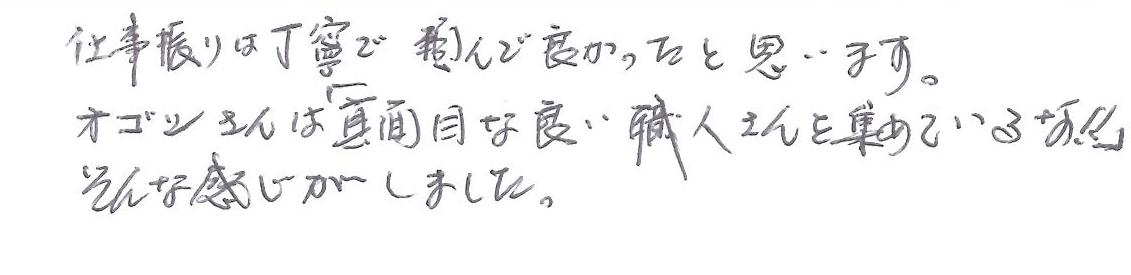 仕事振りは丁寧で頼んで良かったと思います。
オゴシさんは「真面目な良い職人さんを集めているなぁ」
そんな感じがしました。